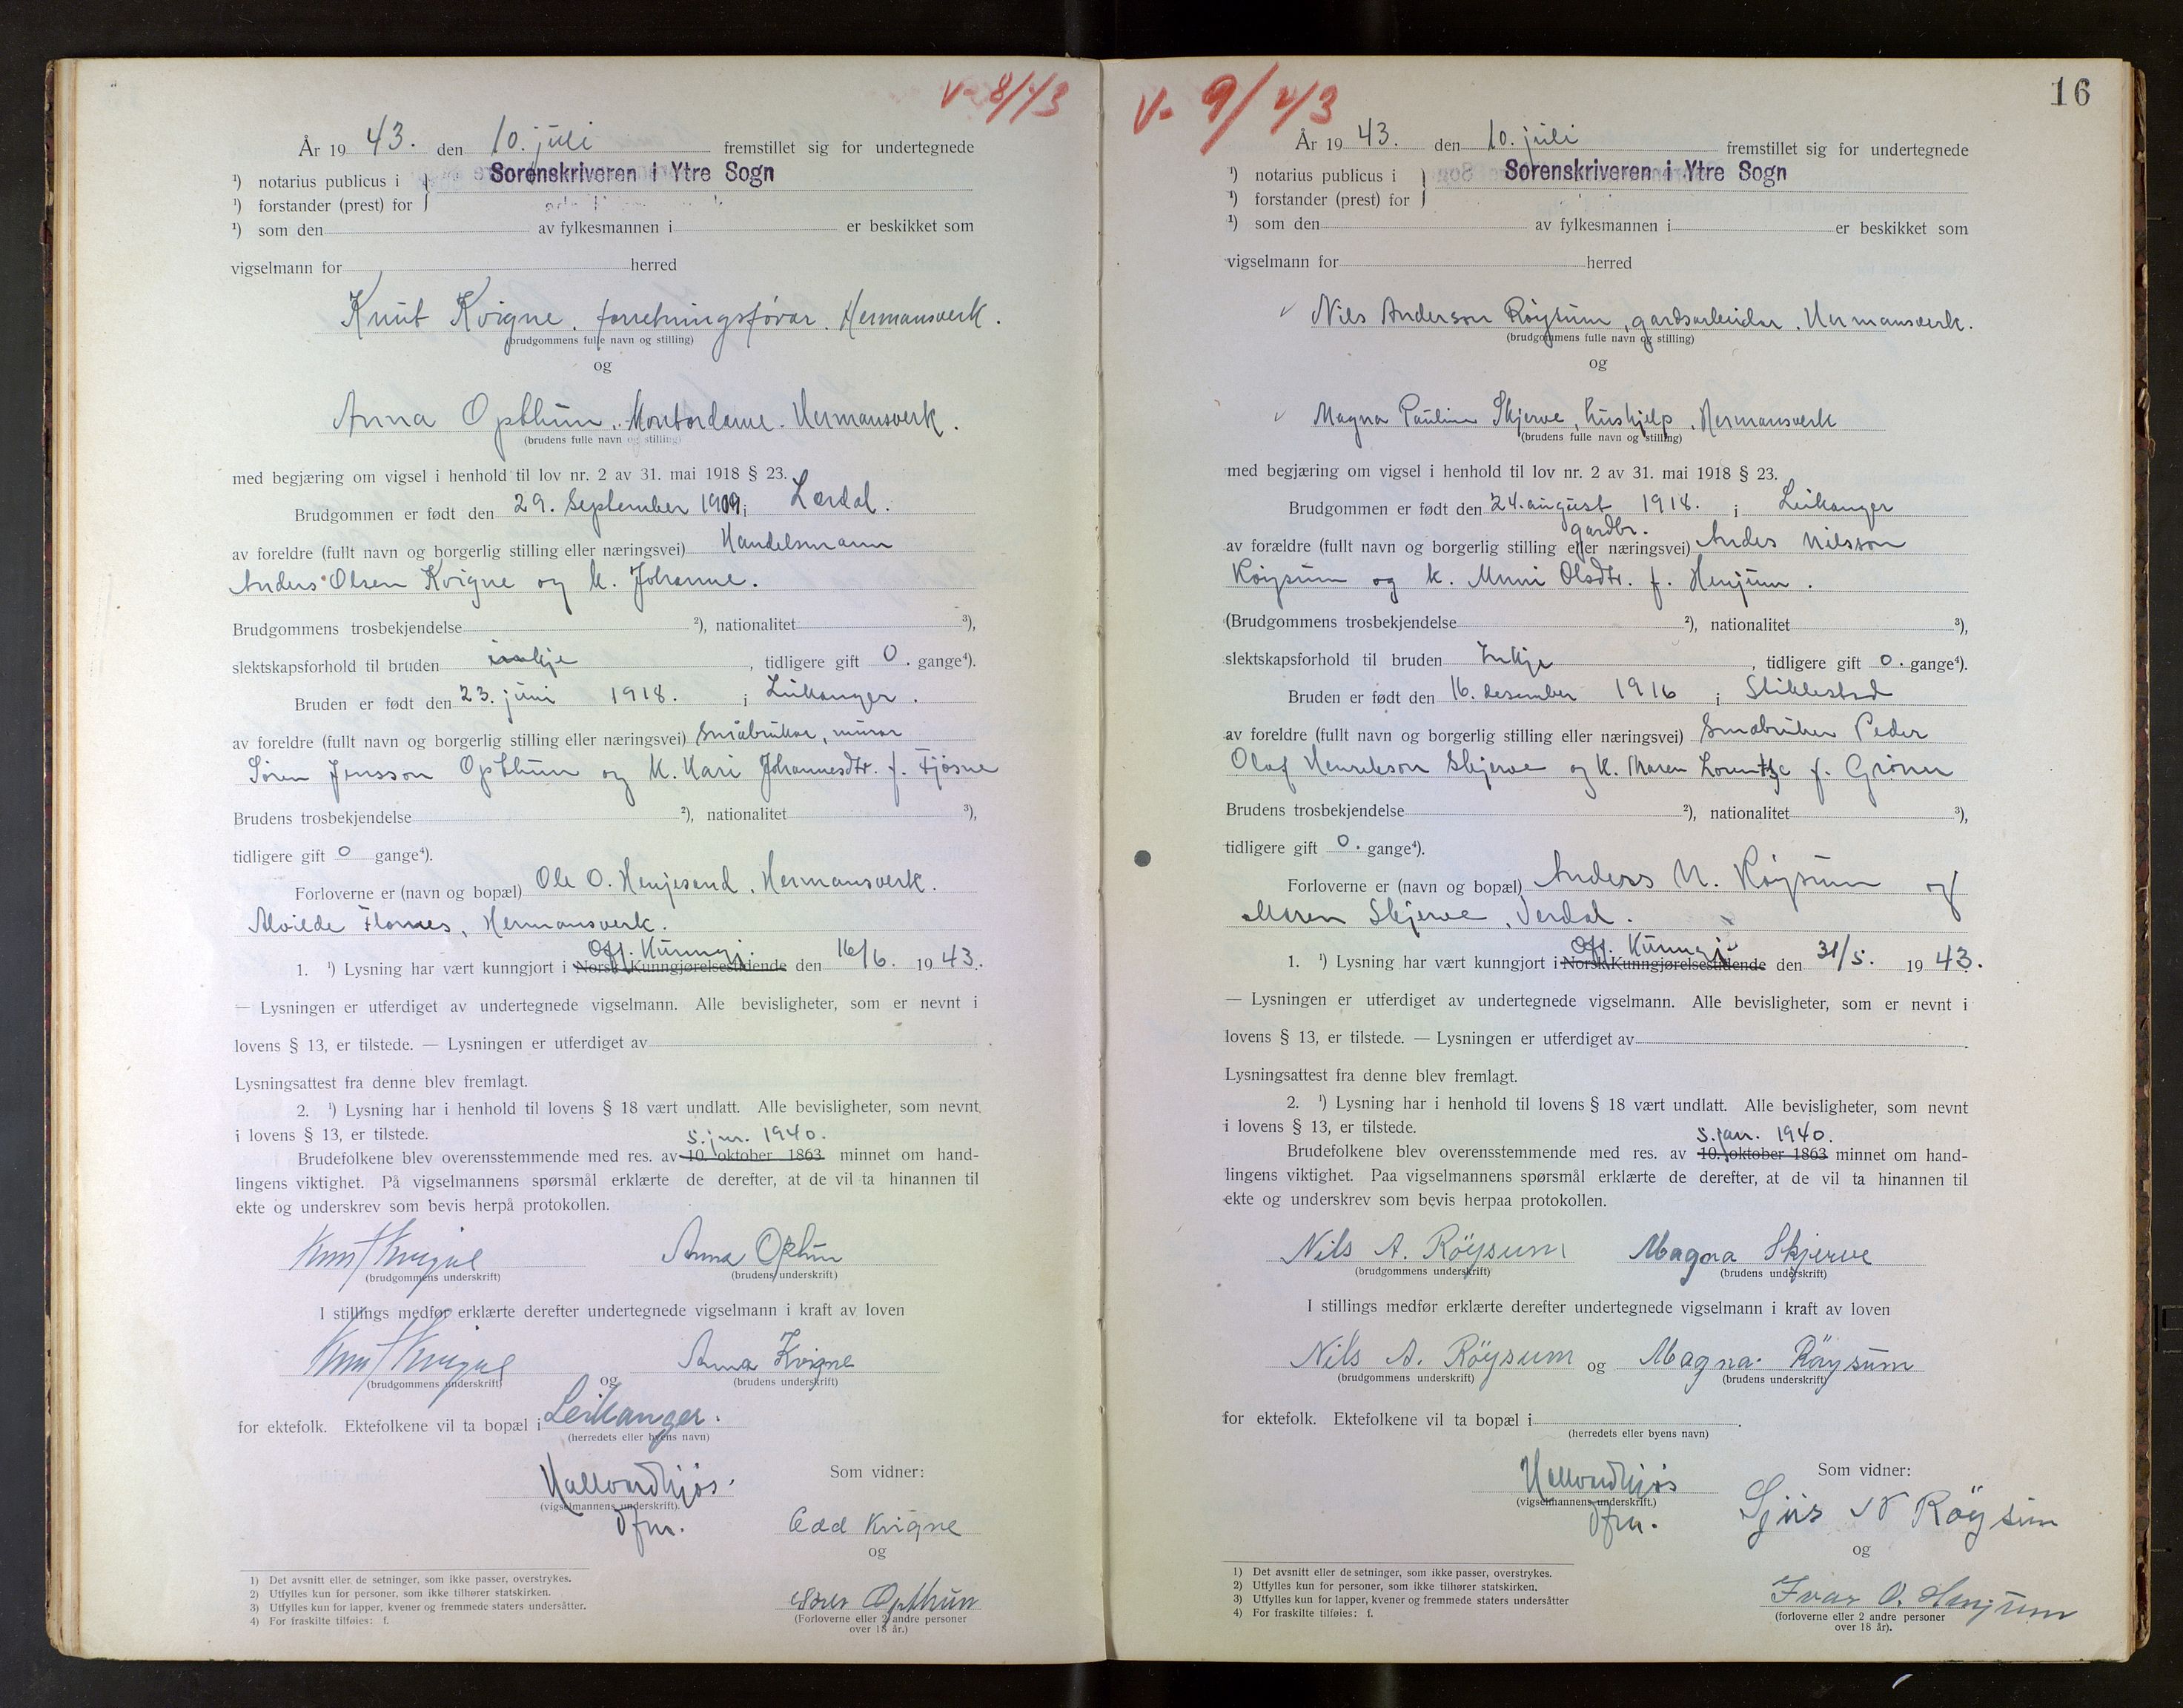 V- 8/43
År 19 43. den 10. juli fremstillet sig for undertegnede
¹) notarius publicus i } Sorenskriveren i Ytre Sogn
¹) forstander (prest) for
¹) som den av fylkesmannen i er beskikket som
vigselmann for herred
Knut Kvigne, forretningsførar. Hermansverk.
(brudgommens fulle navn og stilling)
og
Anna Opthun, Kontordame. Hermansverk.
(brudens fulle navn og stilling)
med begjæring om vigsel i henhold til lov nr. 2 av 31. mai 1918 § 23.
Brudgommen er født den 29. September 1909 i Lærdal.
av foreldre (fullt navn og borgerlig stilling eller næringsvei) Handelsmann
Anders Olsen Kvigne og k. Johanne.
Brudgommens trosbekjendelse ²), nationalitet ³),
slektskapsforhold til bruden inkje, tidligere gift 0. gange⁴).
Bruden er født den 23. juni 1918. i Leikanger.
av foreldre (fullt navn og borgerlig stilling eller næringsvei) Småbrukar, murar
Søren Jensson Opthun og k. Kari Johannesdtr. f. Fjøsne
Brudens trosbekjendelse ²), nationalitet ³),
tidligere gift 0 gange⁴).
Forloverne er (navn og bopæl) Ole O. Henjesand, Hermansverk.
Alvilde Flornes, Hermansverk.
Off. Kunngj.
1. ¹) Lysning har vært kunngjort i Norsk Kunngjørelsestidende den 16/6. 19 43.
— Lysningen er utferdiget av undertegnede vigselmann. Alle bevisligheter, som er nevnt i
lovens § 13, er tilstede. — Lysningen er utferdiget av
Lysningsattest fra denne blev fremlagt.
2. ¹) Lysning har i henhold til lovens § 18 vært undlatt. Alle bevisligheter, som nevnt
i lovens § 13, er tilstede.
5. jan. 1940.
Brudefolkene blev overensstemmende med res. av 10. oktober 1863 minnet om hand-
lingens viktighet. På vigselmannens spørsmål erklærte de derefter, at de vil ta hinannen til
ekte og underskrev som bevis herpå protokollen.
Knut Kvigne Anna Opthun
(brudgommens underskrift) (brudens underskrift)
I stillings medfør erklærte derefter undertegnede vigselmann i kraft av loven
Knut Kvigne og Anna Kvigne
(brudgommens underskrift) (brudens underskrift)
for ektefolk. Ektefolkene vil ta bopæl i Leikanger.
(herredets eller byens navn)
Hallvard Hjøs.
(vigselmannens underskrift).
dfm.
Som vidner:
Edd Kvigne
og
Søren Opthun
(Forloverne eller 2 andre personer
over 18 år.)
1) Det avsnitt eller de setninger, som ikke passer, overstrykes.
2) Utfylles kun for personer, som ikke tilhører statskirken.
3) Utfylles kun for lapper, kvener og fremmede staters undersåtter.
4) For fraskilte tilføies: f.
16
V- 9/43
År 19 43. den 10. juli fremstillet sig for undertegnede
¹) notarius publicus i } Sorenskriveren i Ytre Sogn
¹) forstander (prest) for
¹) som den av fylkesmannen i er beskikket som
vigselmann for herred
Nils Anderson Røysum, gardsarbeidar, Hermansverk.
(brudgommens fulle navn og stilling)
og
Magna Pauline Skjerve, hushjelp, Hermansverk
(brudens fulle navn og stilling)
med begjæring om vigsel i henhold til lov nr. 2 av 31. mai 1918 § 23.
Brudgommen er født den 24. august 1918. i Leikanger
gardbr.
av forældre (fullt navn og borgerlig stilling eller næringsvei) Andes Nilsson
Røysum og k. Unni Olsdtr. f. Henjum.
(Brudgommens trosbekjendelse ²), nationalitet ³),
slektskapsforhold til bruden Inkje, tidligere gift 0. gange⁴).
Bruden er født den 16. desember 1916 i Stiklestad
av foreldre (fullt navn og borgerlig stilling eller næringsvei) Småbruker Peder
Olaf Henrikson Skjerve og k. Maren Lorentze f. Grönn
Brudens trosbekjendelse ²), nationalitet ³),
tidligere gift 0. gange⁴).
Forloverne er (navn og bopæl) Anders N. Røysum og
Maren Skjerve, Verdal.
Off. Kunngj.
1. ¹) Lysning har vært kunngjort i Norsk Kunngjørelsestidende den 31/5. 19 43.
— Lysningen er utferdiget av undertegnede vigselmann. Alle bevisligheter, som er nevnt i
lovens § 13, er tilstede. — Lysningen er utferdiget av
Lysningsattest fra denne blev fremlagt.
2. ¹) Lysning har i henhold til lovens § 18 vært undlatt. Alle bevisligheter, som nevnt
i lovens § 13, er tilstede.
5. jan. 1940.
Brudefolkene blev overensstemmende med res. av 10. oktober 1863 minnet om hand-
lingens viktighet. Paa vigselmannens spørsmål erklærte de derefter, at de vil ta hinannen til
ekte og underskrev som bevis herpaa protokollen.
Nils A. Röysum Magna Skjerve
(brudgommens underskrift) (brudens underskrift)
I stillings medfør erklærte derefter undertegnede vigselmann i kraft av loven
Nils A. Röysum og Magna Röysum
(brudgommens underskrift) (brudens underskrift)
for ektefolk. Ektefolkene vil ta bopæl i
(herredets eller byens navn)
Hallvard Hjøs
(vigselmannens underskrift.)
dfm.
Som vidner:
Sjur N Röysum
og
Ivar O. Henjum
(forloverne eller 2 andre personer
over 18 år).
1) Det avsnitt eller de setninger, som ikke passer, overstrykes.
2) Utfylles kun for personer, som ikke tilhører statskirken.
3) Utfylles kun for lapper, kvener og fremmede staters undersåtter
4) For fraskilte tilføies: f.